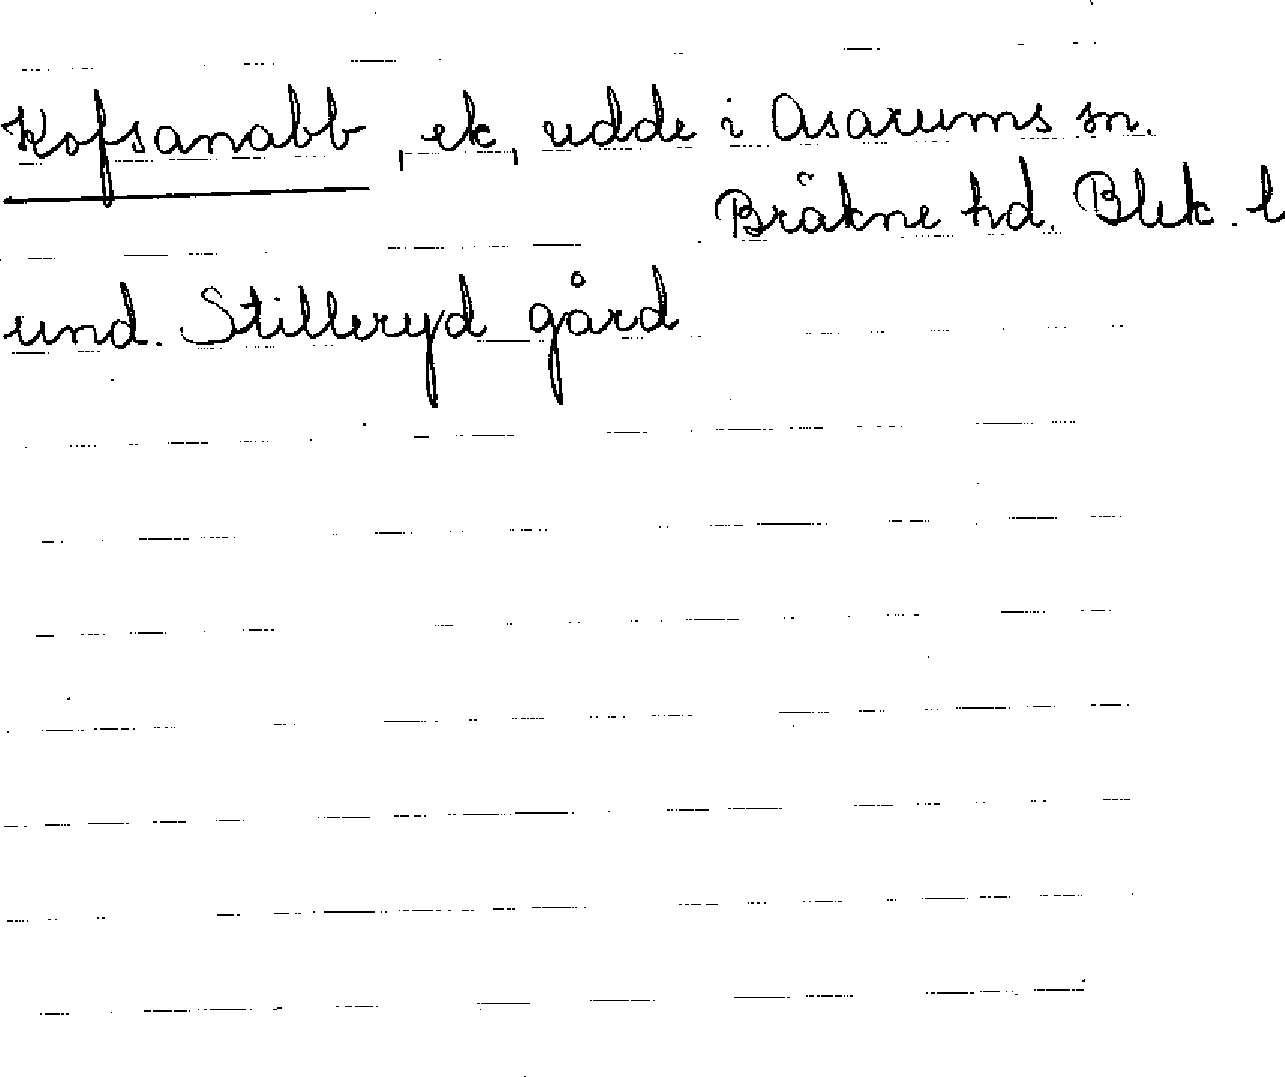 Kofsanabb, ek, udde i Asarums sn.
Bräkne hd. Blek. l
und. Stilleryd gård